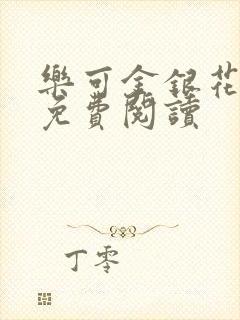 樂可金銀花
免費閱讀
丁零